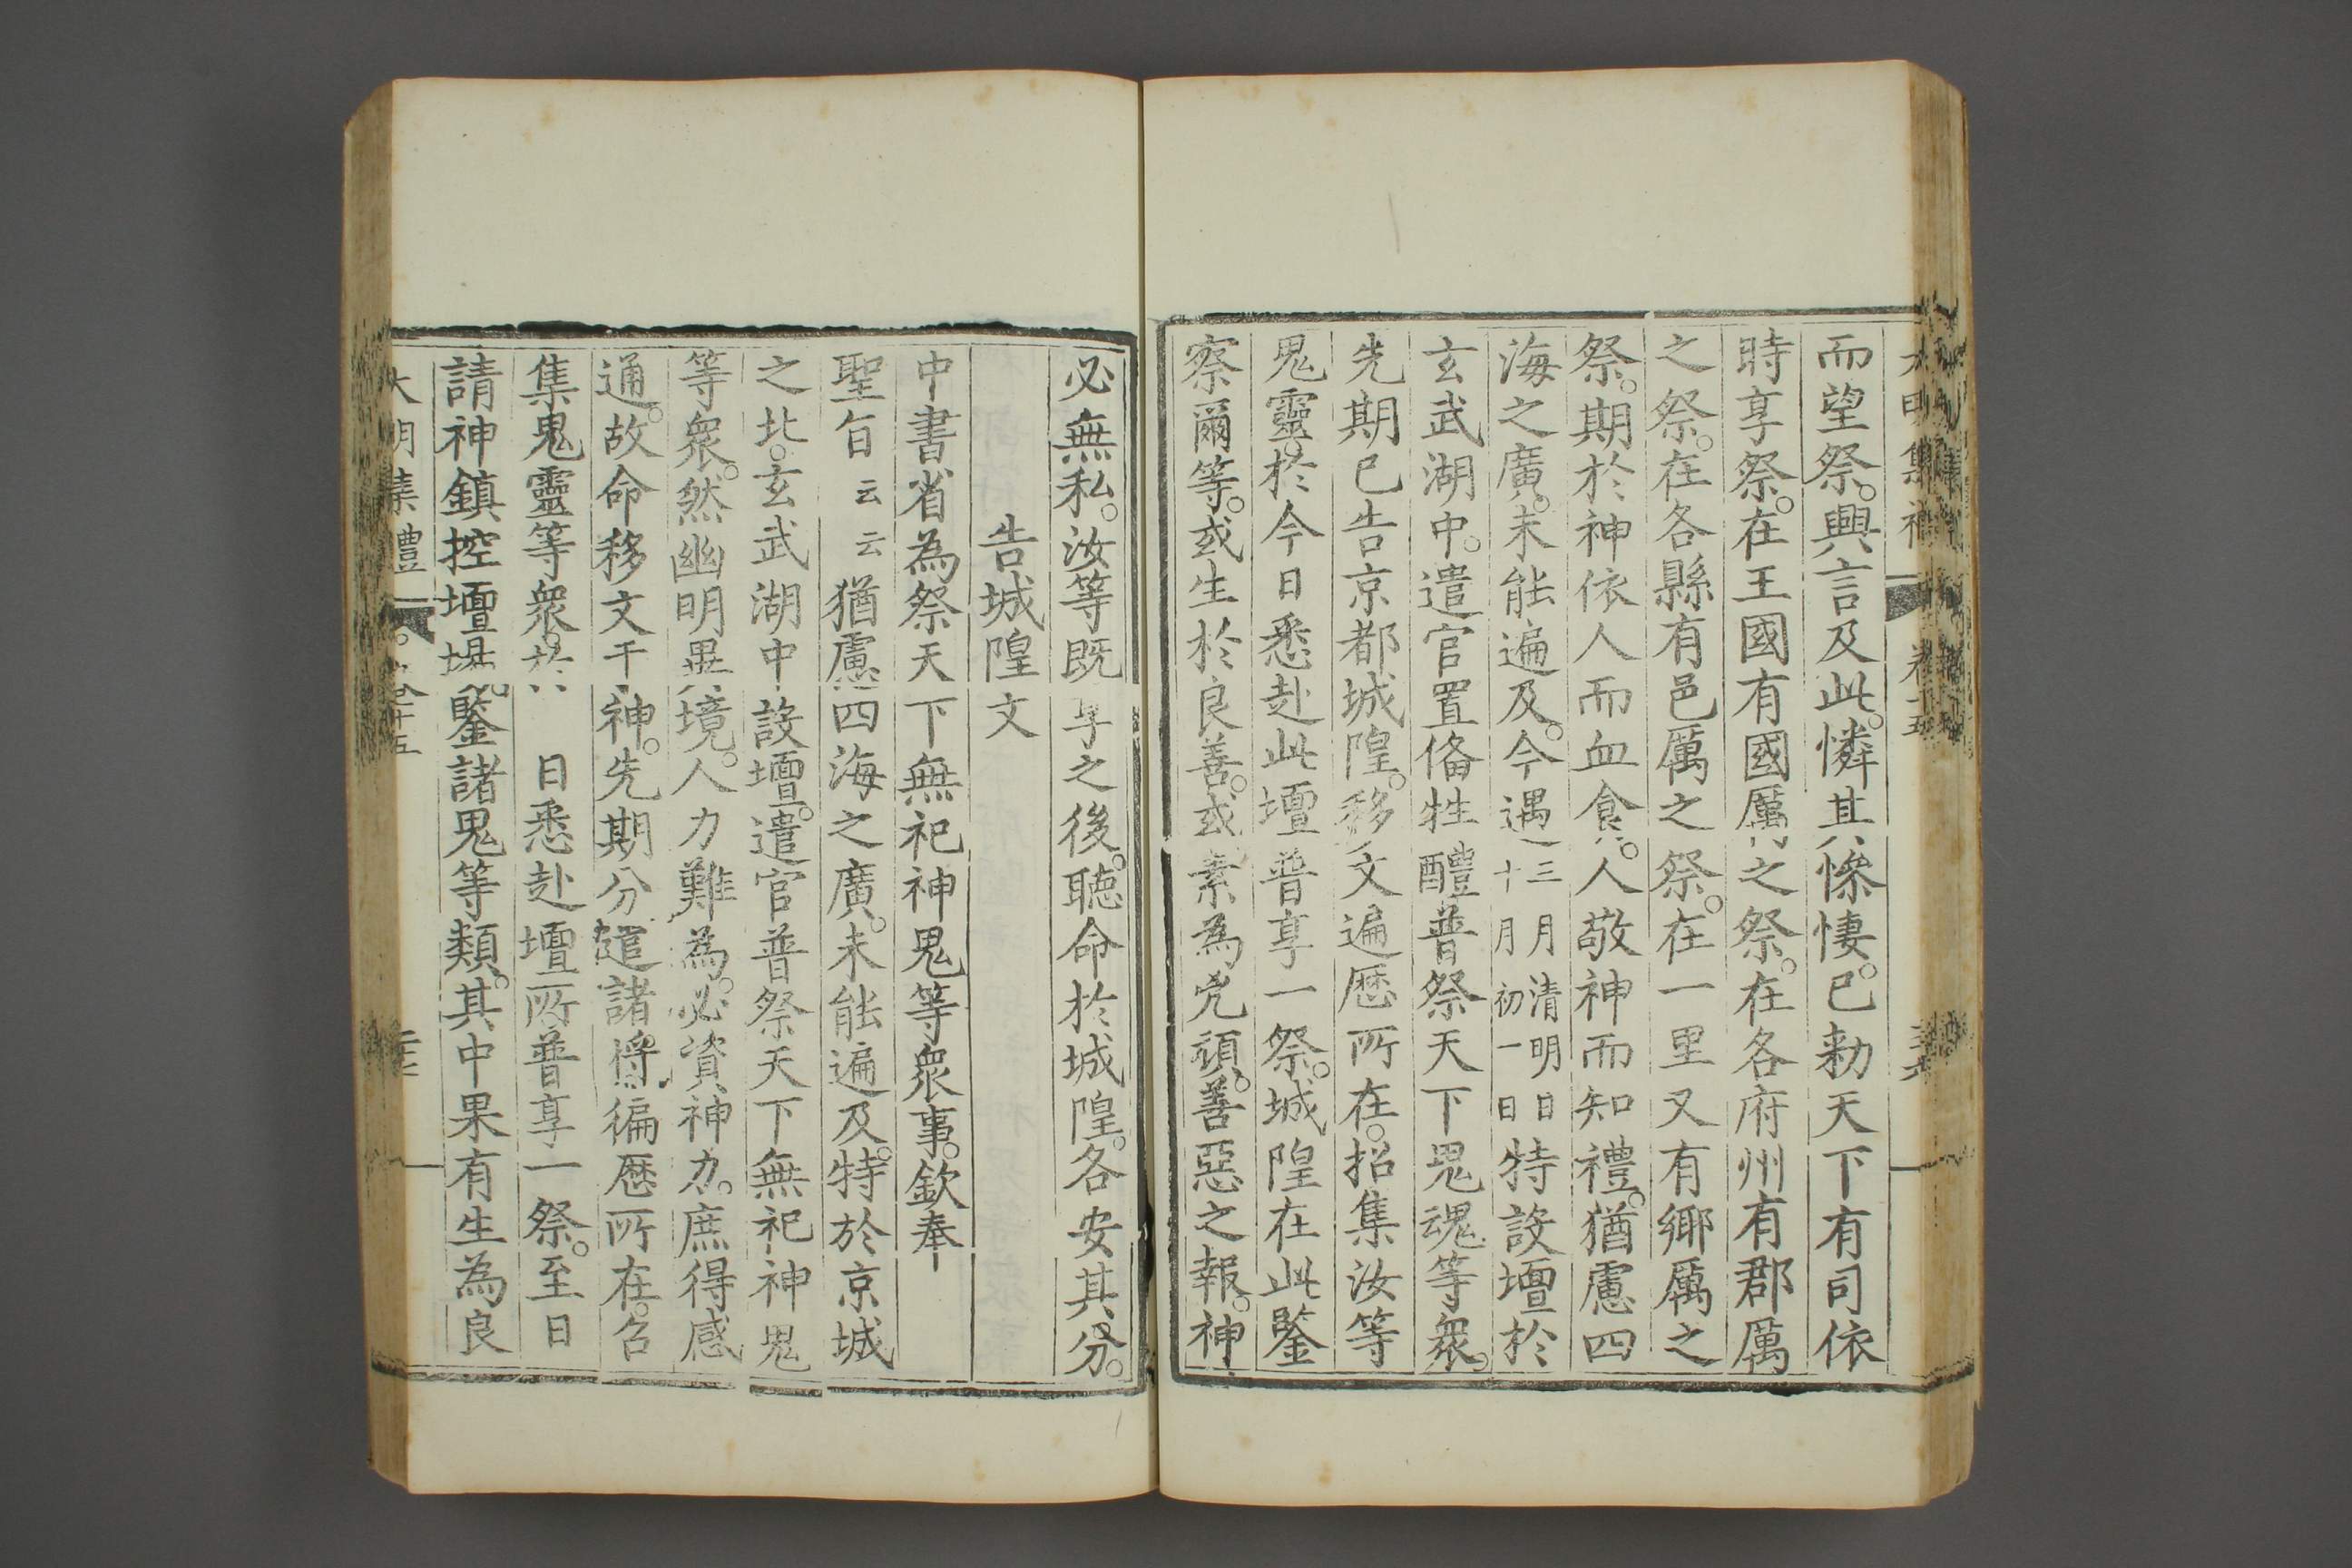 而望祭。興言及此。憐其慘悽。已勑天下有司依
時享祭。在王國有國厲之祭。在各府州有郡厲
之祭。在各縣有邑厲之祭。在一里又有鄉厲之
祭。期於神依人而血食。人敬神而知禮。猶慮四
海之廣。未能遍及。今遇三月清明日十月初一日特設壇於
玄武湖中。遣官置俻牲醴普祭天下鬼魂等衆。
先期已告京都城隍。移文遍歷所在。招集汝等
鬼靈。於今日悉赴此壇普享一祭。城隍在此鑒
察爾等。或生於良善。或素為兇頑。善惡之報。神
必無私。汝等既享之後。聽命於城隍。各安其分。
告城隍文
中書省為祭天下無祀神鬼等衆事。欽奉
聖旨云云猶慮四海之廣。未能遍及。特於京城
之北。玄武湖中設壇。遣官普祭天下無祀神鬼
等衆。然幽明異境。人力難為。必資神力。庶得感
通。故命移文于神。先期分遣諸將。徧歷所在。召
集鬼靈等衆。於 日悉赴壇所普享一祭。至日
請神鎮控壇場。鑒諸鬼等類。其中果有生為良
大明集禮 卷十五